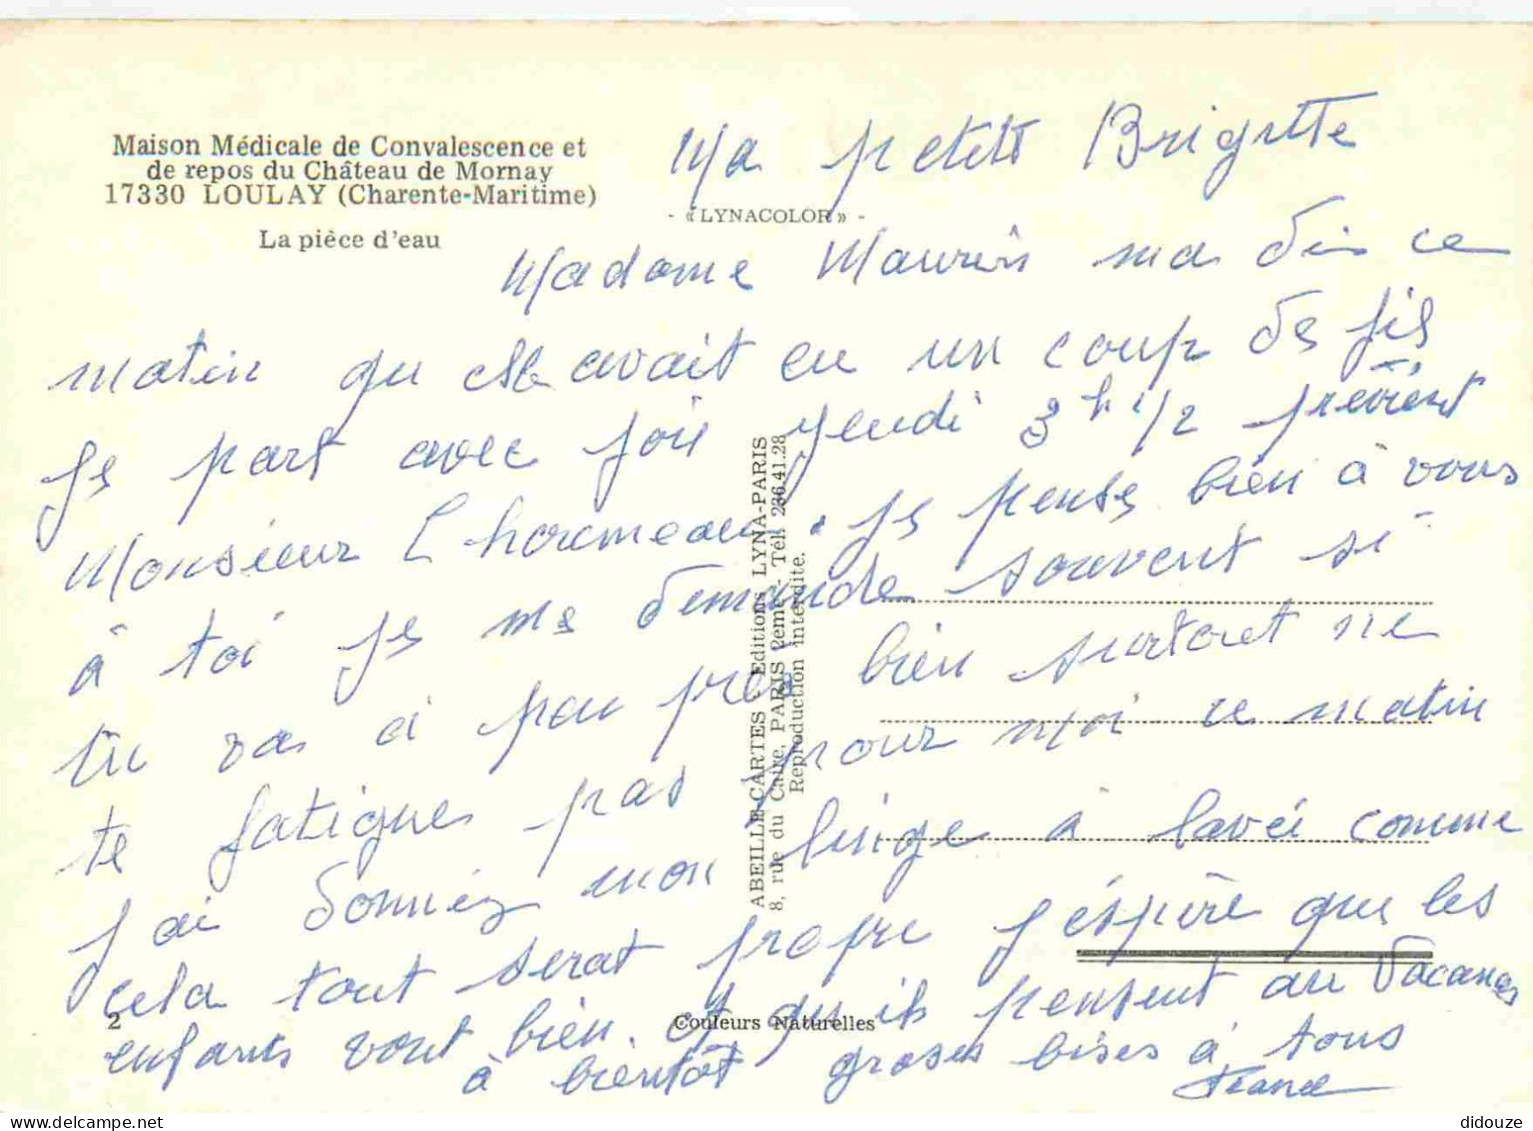 Maison Médicale de Convalescence et
de repos du Château de Mornay
17330 LOULAY (Charente-Maritime)
La pièce d'eau
- «LYNACOLOR» -
Ma petite Brigitte
Madame ma dis ce
matin qu elle avait eu un coup de fils
je part avec joie jeudi 3 h 1/2 prévient
Monsieur L hormeau. je pense bien à vous
à toi je me demande souvent si
tu vas a peu pres bien surtout ne
te fatigue pas pour moi ce matin
j ai donniez mon linge à lavéi comme
cela tout serat propre j éspère que les
enfants vont bien. et qu ils pensent au vacances
à bientôt groses bises à tous
France
ABEILLE-CARTES - Editions LYNA-PARIS
8, rue du Caire, PARIS 2eme - Tél. 236.41.28
Reproduction interdite.
2
Couleurs Naturelles
didouze
delcampe.net